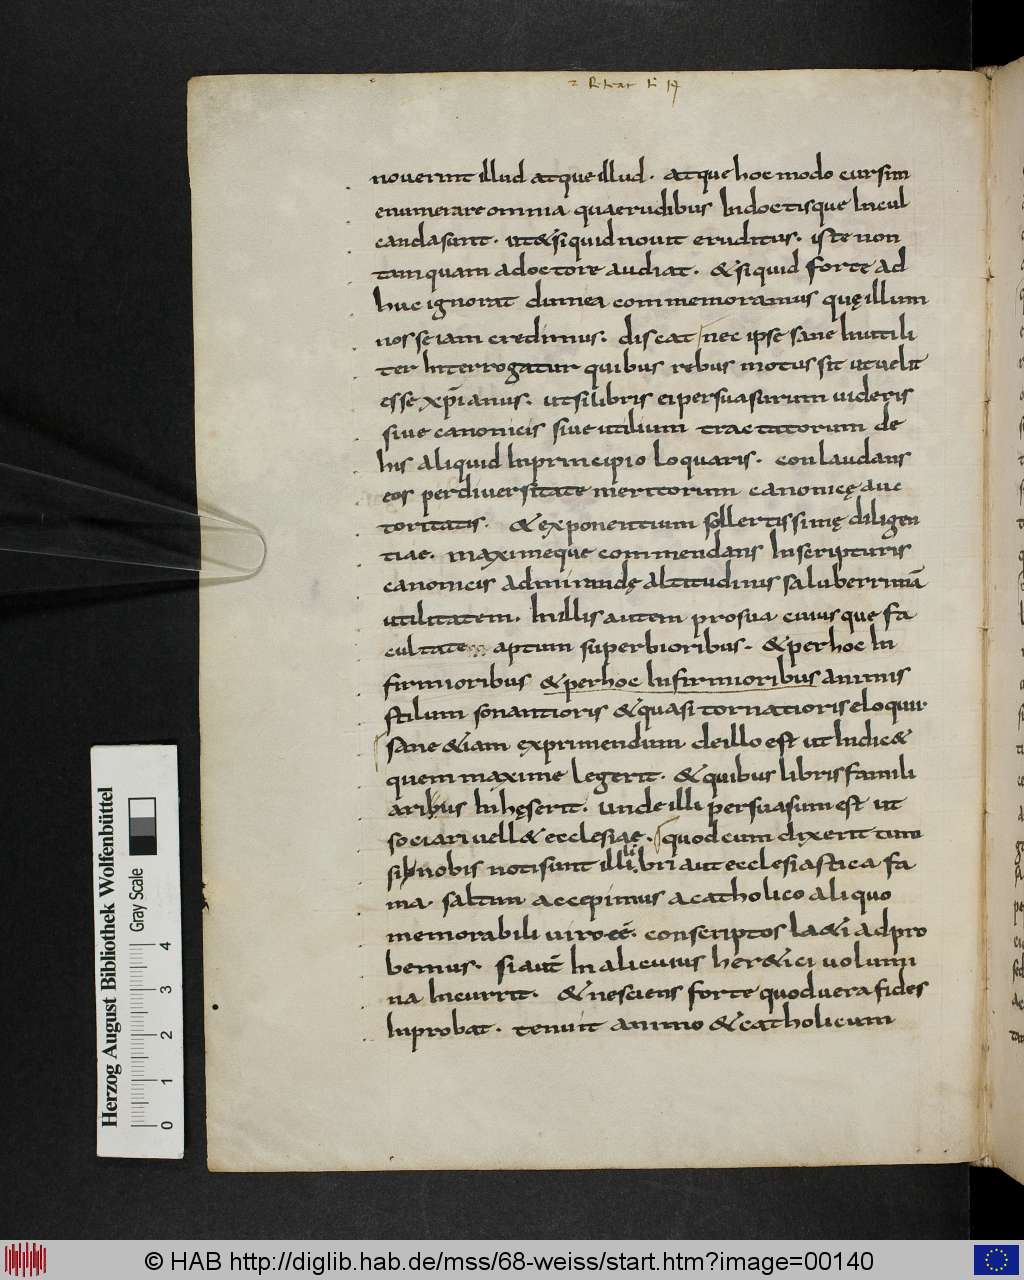 nouerint illud atque illud. atque hoc modo cursim
enumerare omnia quae rudibus Indoctisque Incul
candasunt. ut&siquid nouit eruditus. iste non
tamquam adoctore audiat. & siquid forte ad
huc ignorat dum ea commemoramus quę illum
nosse iam credimus. discat nec ipse sane Inutili
ter Interrogatur quibus rebus motus sit ut uelit
esse xp̄ianus. utsi libris ei persuasurum uideris
siue canonicis siue utilium tractatorum de
his aliquid Inprincipio loquaris. conlaudans
eos perdiuersitate meritorum canonicę auc
toritatis. & exponentium sollertissimę diligen
tiae. maximeque commendans Inscripturis
canonicis admirandę altitudinis saluberrimā
utilitatem. Inillis autem prosua cuiusque fa
cultate aptum superbioribus. & perhoc In
firmioribus & perhoc Infirmioribus animis
stilum sonantioris & quasi tornatioris eloquii.
sane &iam exprimendum deillo est ut Indic&
quem maxime legerit. & quibus libris famili
aribus Inhęserit. unde illi persuasum est ut
sociari uell& ecclesiae. quod cum dixerit tum
si nobis noti sunt illi libri aut ecclesiastica fa
ma. saltim accepimus acatholico aliquo
memorabili uiro eē. conscriptos l&i adpro
bemus. siaut̄ In alicuius her&ici uolumi
na Incurrit. & nesciens forte quod uera fides
Inprobat. tenuit animo & catholicum
Herzog August Bibliothek Wolfenbüttel
Gray Scale
0 1 2 3 4
© HAB http://diglib.hab.de/mss/68-weiss/start.htm?image=00140